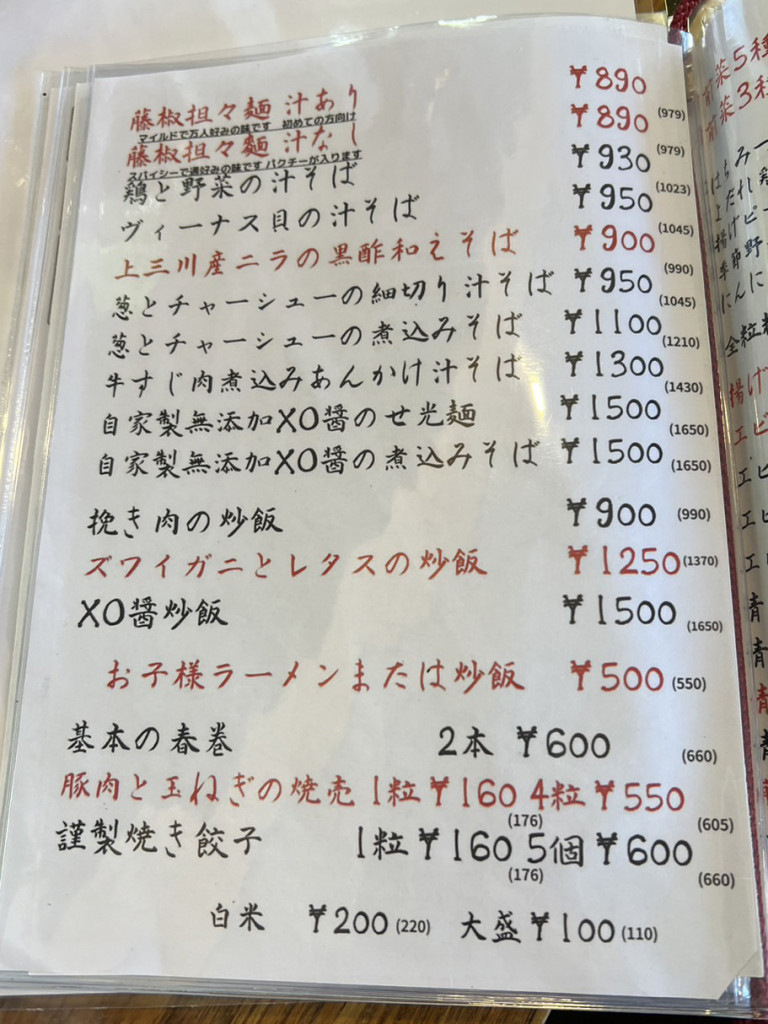 藤椒担々麺 汁あり ¥890 (979)
マイルドで万人好みの味です 初めての方向け
藤椒担々麺 汁なし ¥890 (979)
スパイシーで通好みの味です パクチーが入ります
鶏と野菜の汁そば ¥930 (1023)
ヴィーナス貝の汁そば ¥950 (1045)
上三川産ニラの黒酢和えそば ¥900 (990)
葱とチャーシューの細切り汁そば ¥950 (1045)
葱とチャーシューの煮込みそば ¥1100 (1210)
牛すじ肉煮込みあんかけ汁そば ¥1300 (1430)
自家製無添加XO醤のせ光麺 ¥1500 (1650)
自家製無添加XO醤の煮込みそば ¥1500 (1650)
挽き肉の炒飯 ¥900 (990)
ズワイガニとレタスの炒飯 ¥1250 (1370)
XO醤炒飯 ¥1500 (1650)
お子様ラーメンまたは炒飯 ¥500 (550)
基本の春巻 2本 ¥600 (660)
豚肉と玉ねぎの焼売 1粒 ¥160 (176) 4粒 ¥550 (605)
謹製焼き餃子 1粒 ¥160 (176) 5個 ¥600 (660)
白米 ¥200 (220) 大盛 ¥100 (110)
前菜5種
前菜3種
季節野
にんに
全粒
揚げ
エビ
エビ
エビ
青
青
青